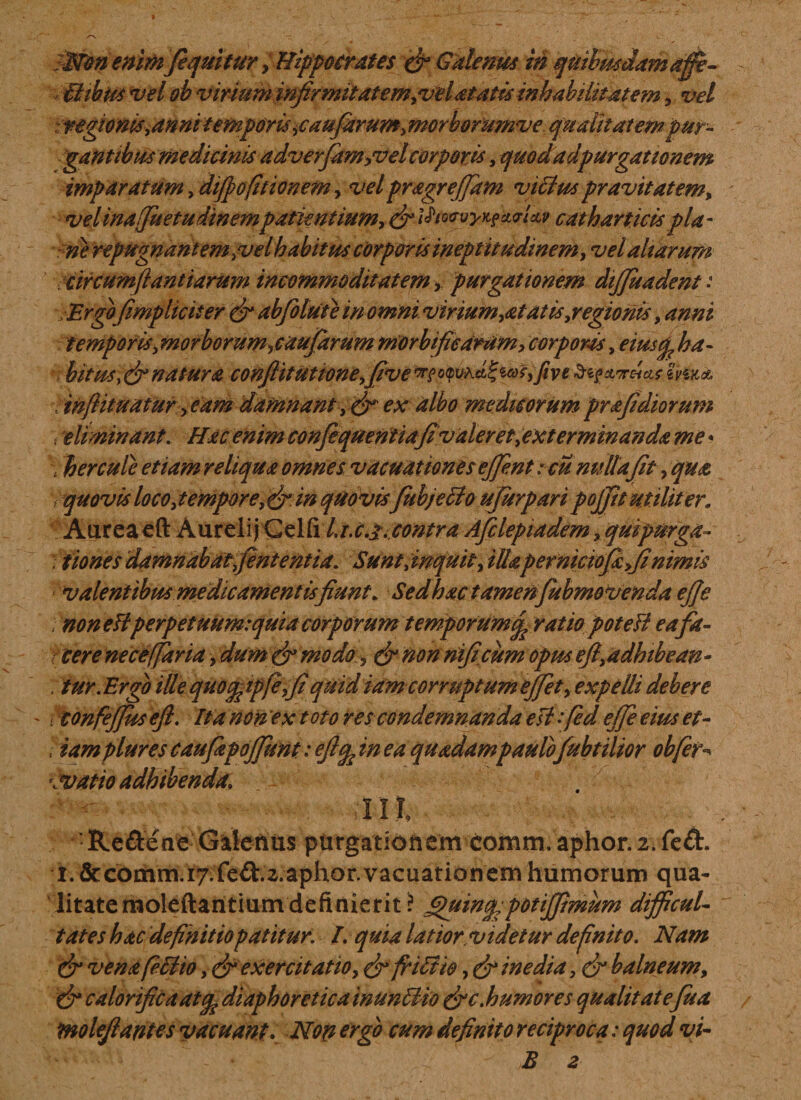 Non enim sequitur, Hippocrates & Galenus in quibusdam affe-
ctibus vel ob virium infirmitatem, vel ætatis inhabilitatem, vel
regionis, anni temporis, causarum, morborumve qualitatem pur-
gantibus medicinis adversam, vel corporis, quod ad purgationem
imparatum, dispositionem, vel prægressam victus pravitatem,
vel inassuetudinem patientium, & ἰδιοσυγκρασίαν catharticis pla-
ne repugnantem, vel habitus corporis ineptitudinem, vel aliarum
circumstantiarum incommoditatem, purgationem dissuadent:
Ergo simpliciter & absolute in omni virium, ætatis, regionis, anni
temporis, morborum, causarum morbificarum, corporis, eiusq; ha-
bitus, & naturæ constitutione, sive προφυλάξεως, sive θεραπείας ἕνεκα
instituatur, eam damnant, & ex albo medicorum præsidiorum
eliminant. Hæc enim consequentia si valeret, exterminandæ me-
hercule etiam reliquæ omnes vacuationes essent: cū nulla sit, quæ
quovis loco, tempore, & in quovis subjecto usurpari possit utiliter.
Aurea est Aurelij Celsi l.1.c.3. contra Asclepiadem, qui purga-
tiones damnabat, sententia. Sunt, inquit, illa perniciosa, si nimis
valentibus medicamentis fiunt. Sed hæc tamen submovenda esse
non est perpetuum: quia corporum temporumq; ratio potest ea fa-
cere necessaria, dum & modo, & non nisi cum opus est, adhibean-
tur. Ergo ille quoq; ipse, si quid iam corruptum esset, expelli debere
confessus est. Ita non ex toto res condemnanda est: sed esse eius et-
iam plures causæ possunt: estq; in ea quædam paulò subtilior obser-
vatio adhibenda.
III.
Rectène Galenus purgationem comm. aphor. 2. sect.
1. & comm. 17. sect. 2. aphor. vacuationem humorum qua-
litate molestantium definierit? Quinq; potissimùm difficul-
tates hæc definitio patitur. I. quia latior videtur definito. Nam
& venæ sectio, & exercitatio, & frictio, & inedia, & balneum,
& calorifica atq; diaphoretica inunctio &c. humores qualitate sua
molestantes vacuant. Non ergò cum definito reciproca: quod vi-
B 2